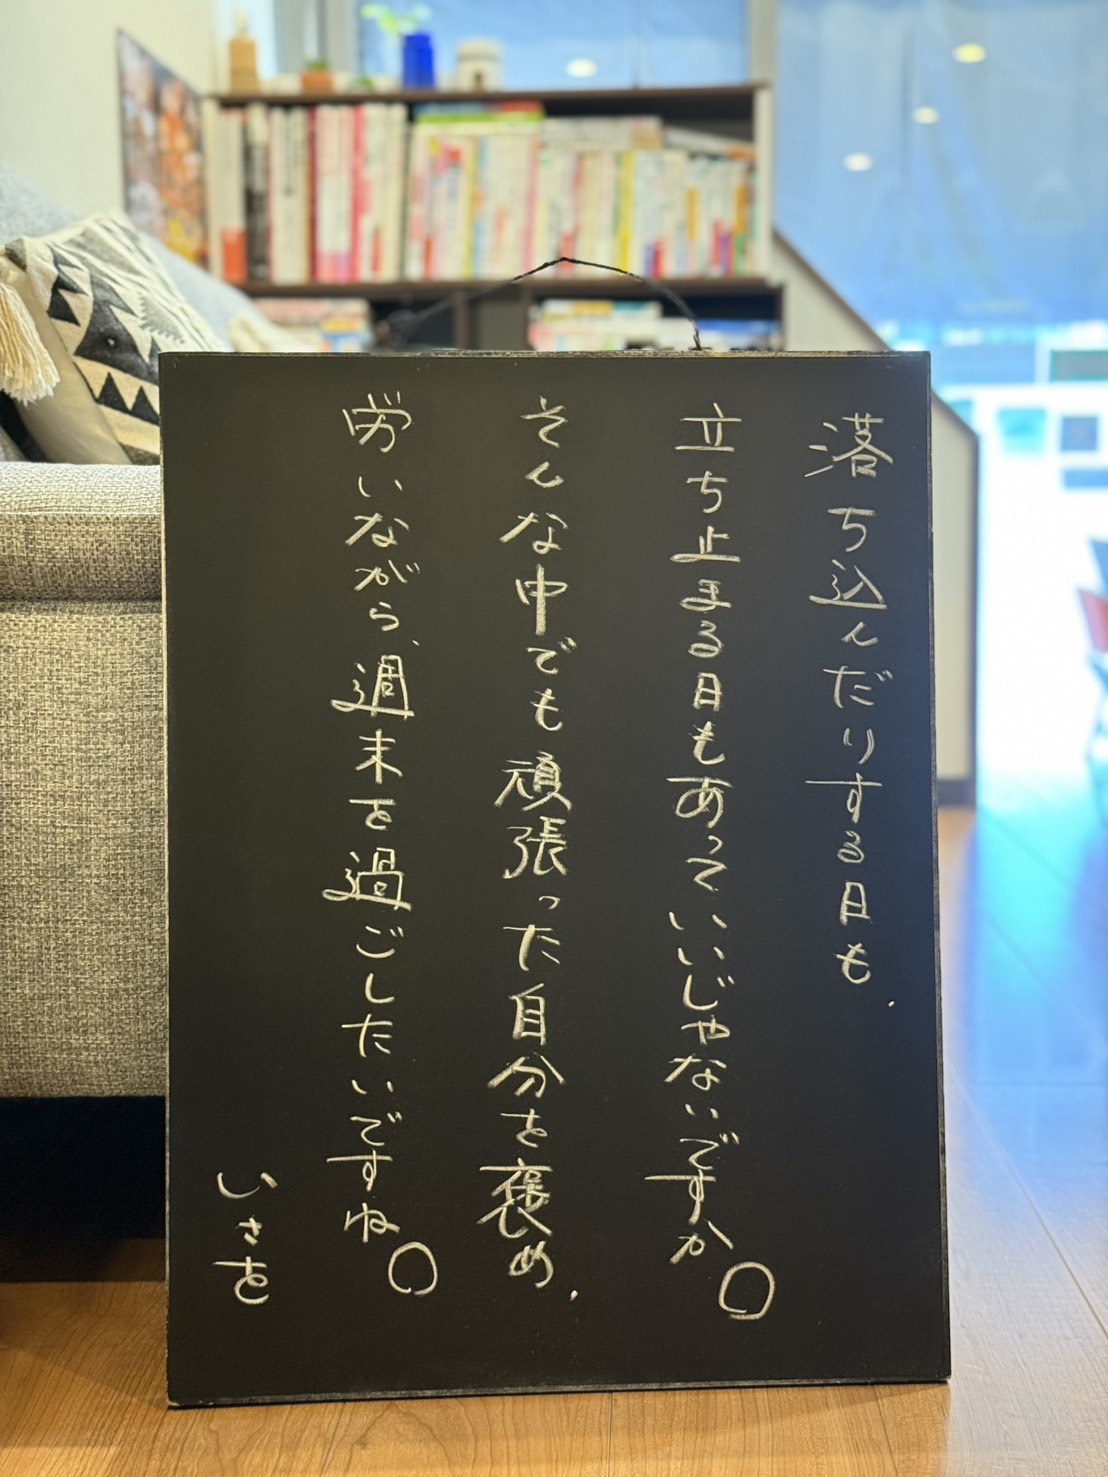 落ち込んだりする日も、
立ち止まる日もあっていいじゃないですか。
そんな中でも頑張った自分を褒め、
労いながら、週末を過ごしたいですね。
いさを